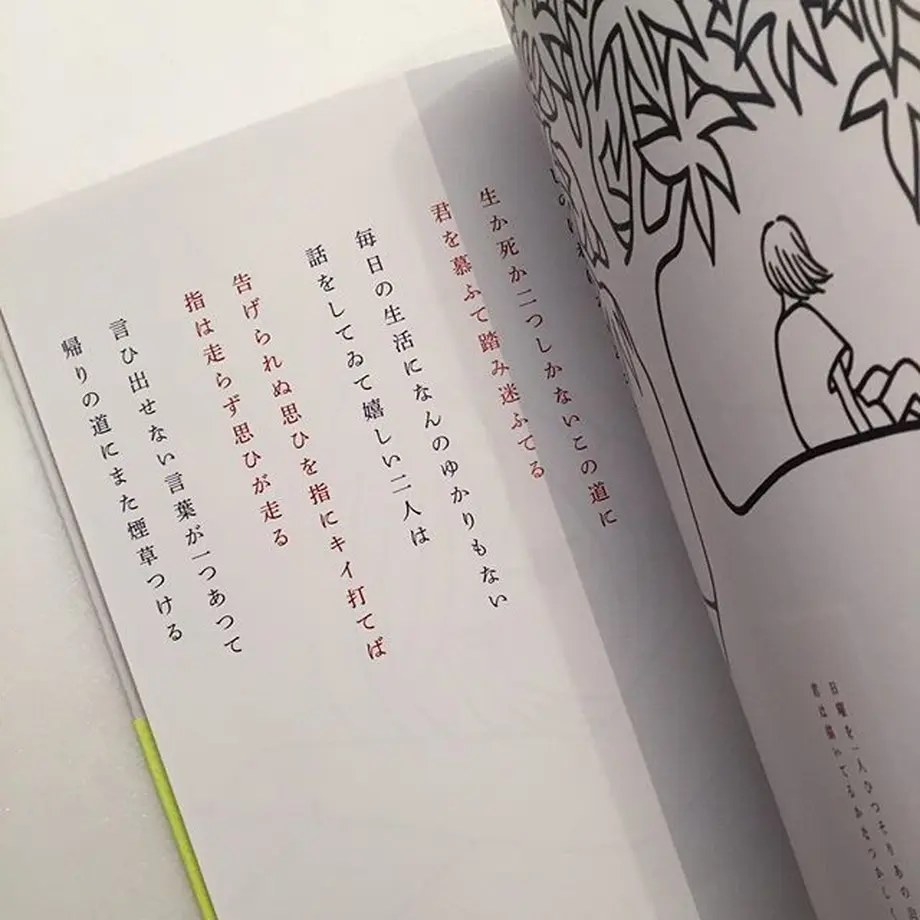 生か死か二つしかないこの道に
君を慕ふて踏み迷ふてる
毎日の生活になんのゆかりもない
話をしてゐて嬉しい二人は
告げられぬ思ひを指にキイ打てば
指は走らず思ひが走る
言ひ出せない言葉が一つあつて
帰りの道にまた煙草つける
日曜を一人ひつそりあの
君は描いてるかなつかしく